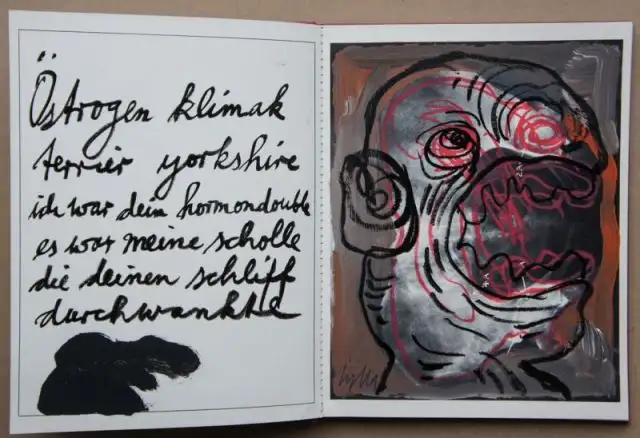 Östrogen klimak
terrier yorkshire
ich war dein hormondouble
es war meine scholle
die deinen schliff
durchwankte